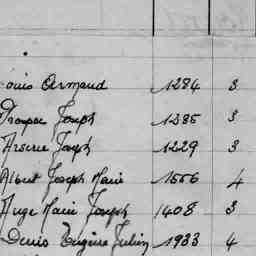 Louis Armand 1284 3
Prosper Joseph 1285 3
Arsene Joseph 1229 3
Albert Joseph Marie 1556 4
Ange Marie Joseph 1408 3
Denis Eugène Julien 1933 4